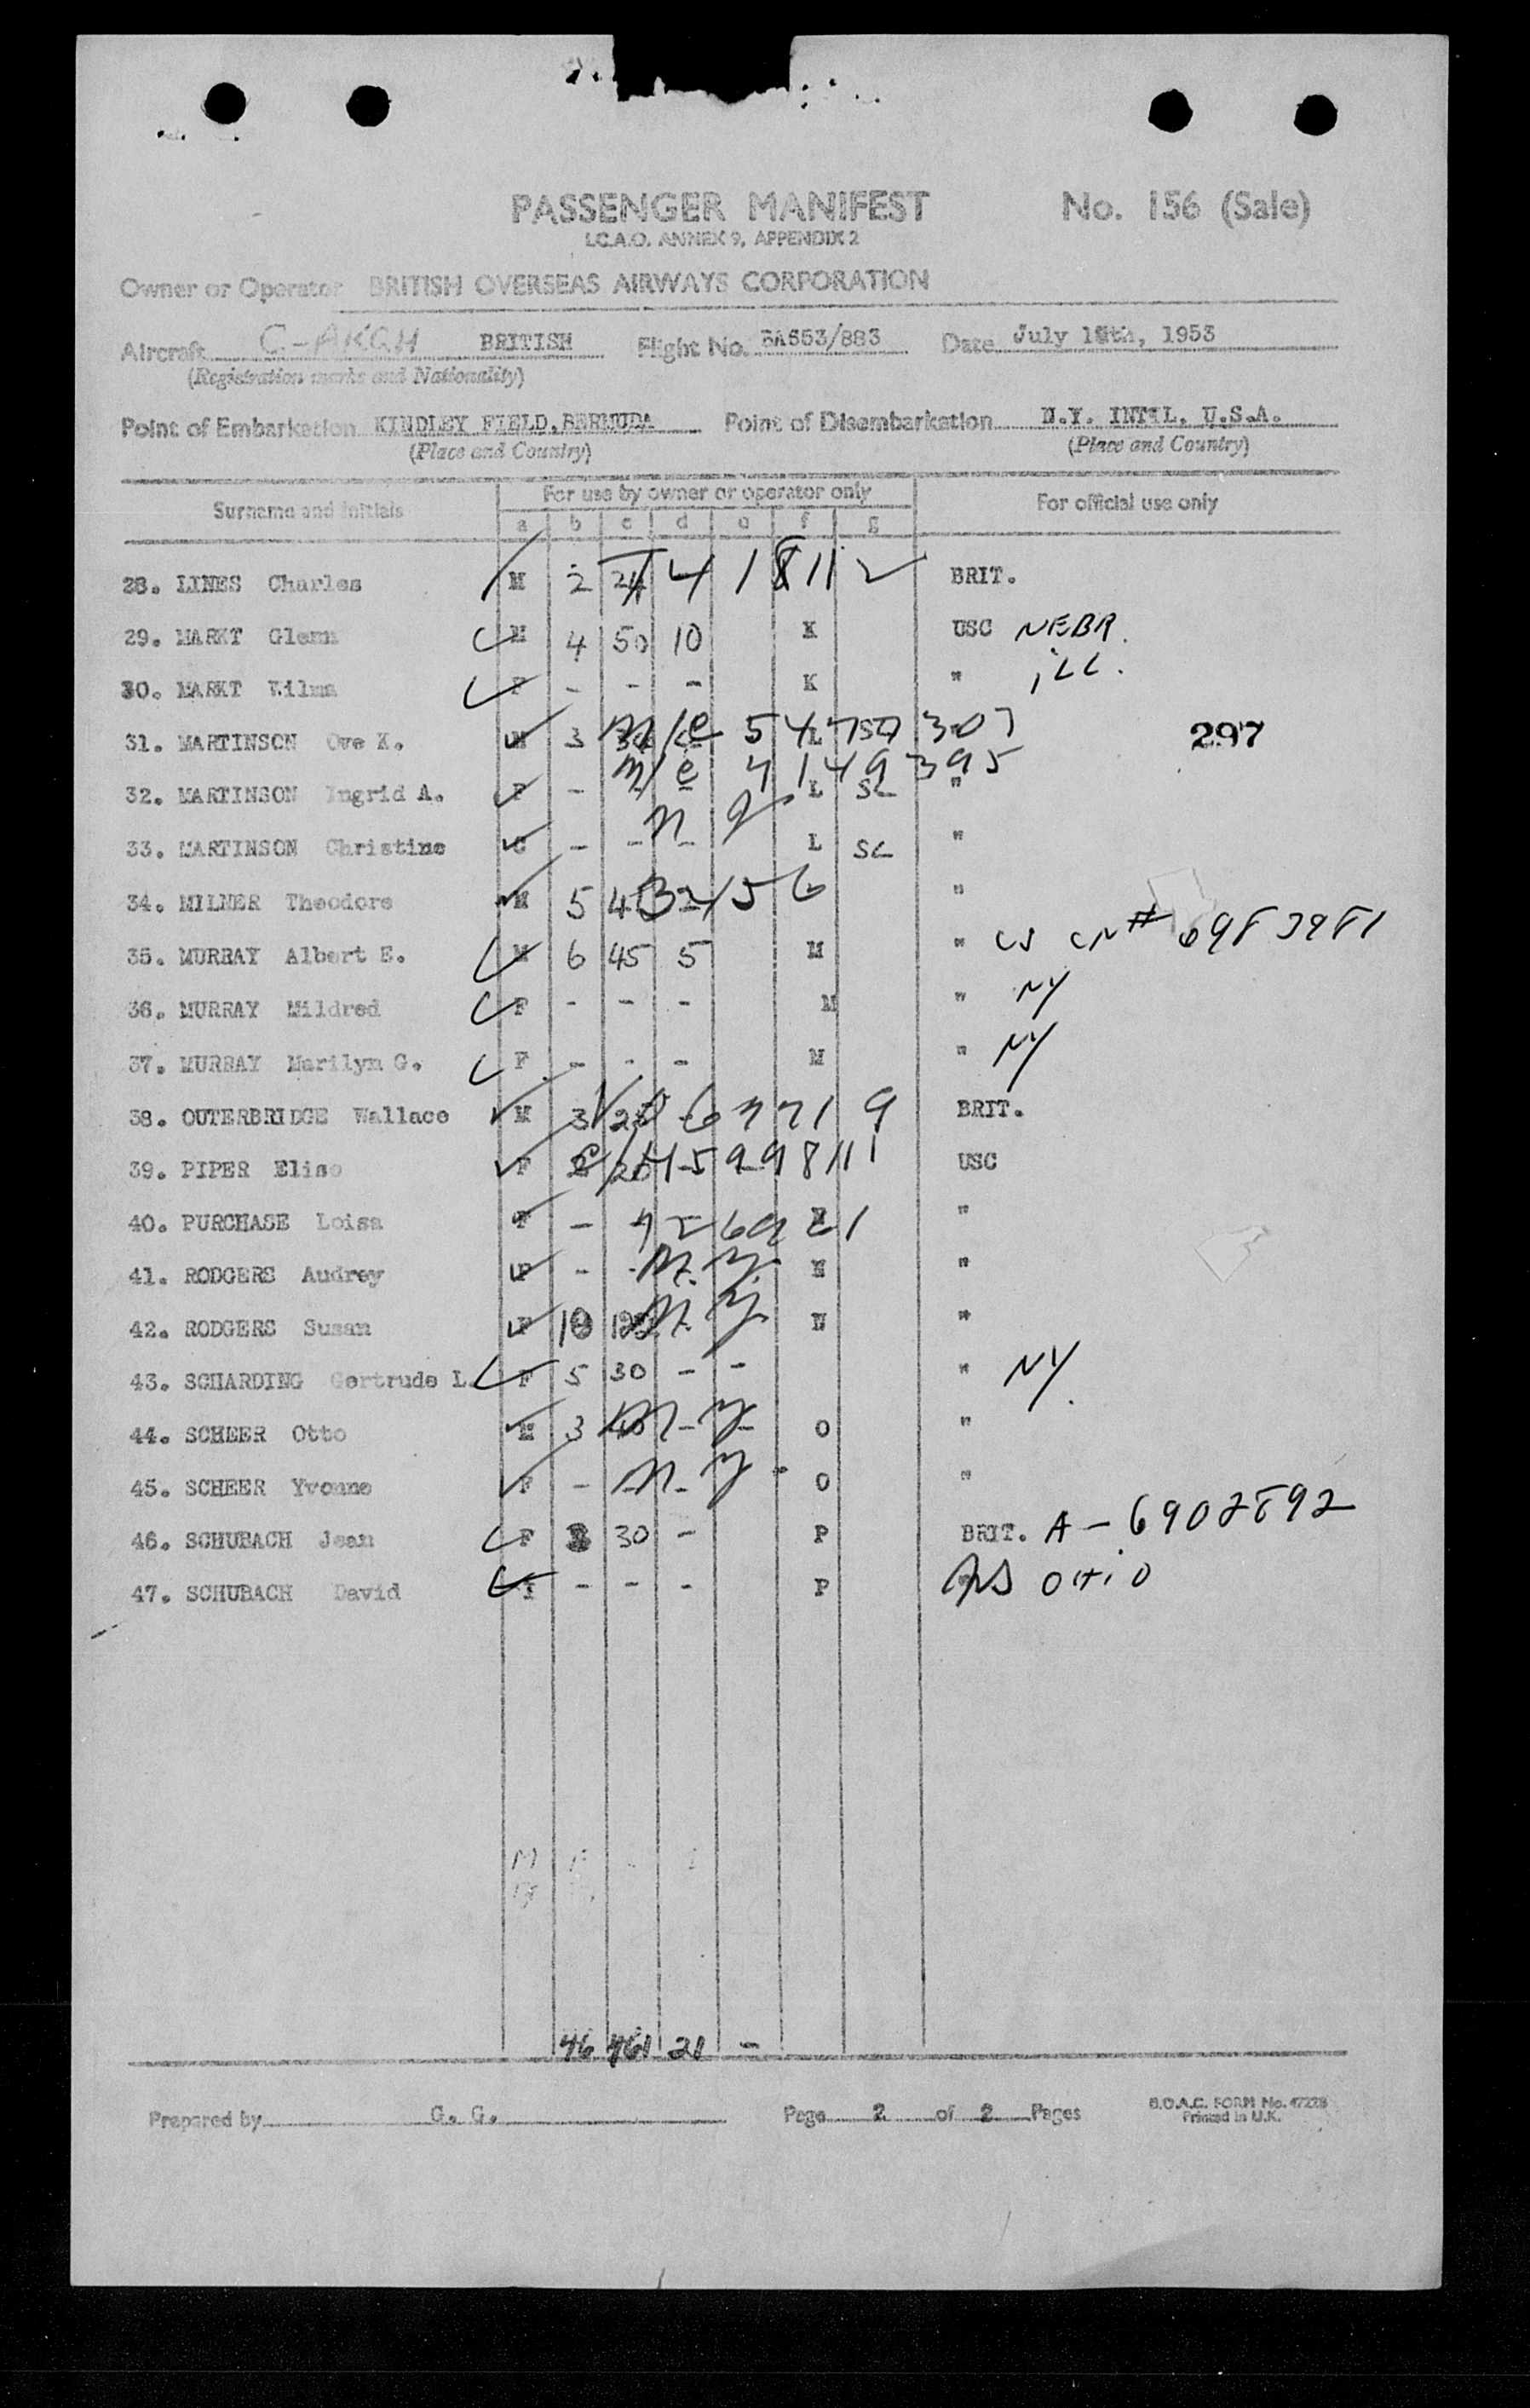 PASSENGER MANIFEST No. 156 (Sale)
I.C.A.O. ANNEX 9, APPENDIX 2
Owner or Operator BRITISH OVERSEAS AIRWAYS CORPORATION
Aircraft G-AKGH BRITISH Flight No. Date July 1953
(Registration marks and Nationality)
Point of Embarkation KINDLEY FIELD, BERMUDA Point of Disembarkation N.Y. INT'L. U.S.A.
(Place and Country) (Place and Country)
Surname and initials For use by owner or operator only For official use only
a b c d e f g
28. LINES Charles M 2 BRIT.
29. MARKT Glenn M 4 50 10 K USC NEBR.
30. MARKT Wilma F - - - K " ILL.
31. MARTINSON Ove K. M 3 L 297
32. MARTINSON Ingrid A. F - L SC "
33. MARTINSON Christine C - - - L SC "
34. MILNER Theodore M 5 "
35. MURRAY Albert E. M 6 45 5 M " # 6983981
36. MURRAY Mildred F - - - M " NY
37. MURRAY Marilyn G. F - - - M " NY
38. OUTERBRIDGE Wallace M 3 BRIT.
39. PIPER Elise F USC
40. PURCHASE Loisa F - "
41. RODGERS Audrey F - - N.Y. N "
42. RODGERS Susan F N.Y. N "
43. SCHARDING Gertrude L. F 5 30 - - " NY.
44. SCHEER Otto M 3 40 - - O "
45. SCHEER Yvonne F - - - - O "
46. SCHUBACH Jean F 30 - P BRIT. A-6902892
47. SCHUBACH David I - - - P OHIO
46 461 21 -
Prepared by G. G. Page 2 of 2 Pages B.O.A.C. FORM No. 47228
Printed in U.K.